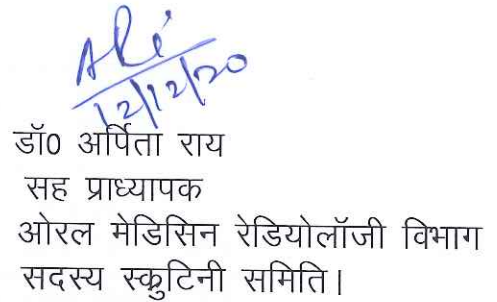 12/12/20
डॉ0 अर्पिता राय
सह प्राध्यापक
ओरल मेडिसिन रेडियोलॉजी विभाग
सदस्य स्क्रुटिनी समिति।